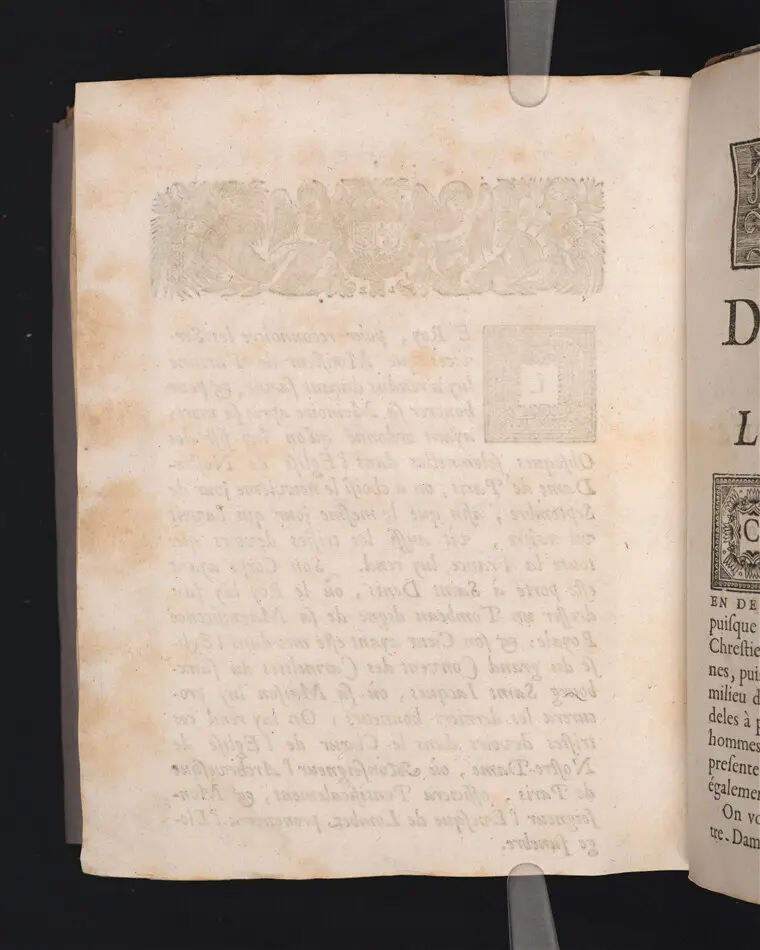 LE Roy, pour reconnoistre les Ser-
vices que Monsieur de Turenne
luy a rendus durant sa vie, & pour
honorer sa Memoire apres sa mort,
ayant ordonné qu'on luy fist des
Obseques solemnelles dans l'Eglise de Nostre-
Dame de Paris, on a choisi le neuviéme jour de
Septembre, afin que le mesme jour qui l'avoit
vû naistre, vit aussi les tristes devoirs que
toute la France luy rend. Son Corps ayant
esté porté à Saint Denis, où le Roy luy fait
dresser un Tombeau digne de sa Magnificence
Royale; & son Cœur ayant esté mis dans l'Egli-
se du grand Convent des Carmelites du faux-
bourg Saint Jacques, où sa Maison luy pro-
curera les derniers honneurs; On luy rend ces
tristes devoirs dans le Chœur de l'Eglise de
Nostre-Dame, où Monseigneur l'Archevesque
de Paris, officiera Pontificalement, & Mon-
seigneur l'Evesque de Lombez, prononcera l'Elo-
ge funebre.
D
L
C
EN DE
puisque
Chrestie
nes, puis
milieu d
deles à p
hommes
presente
égalemen
On vo
tre-Dam